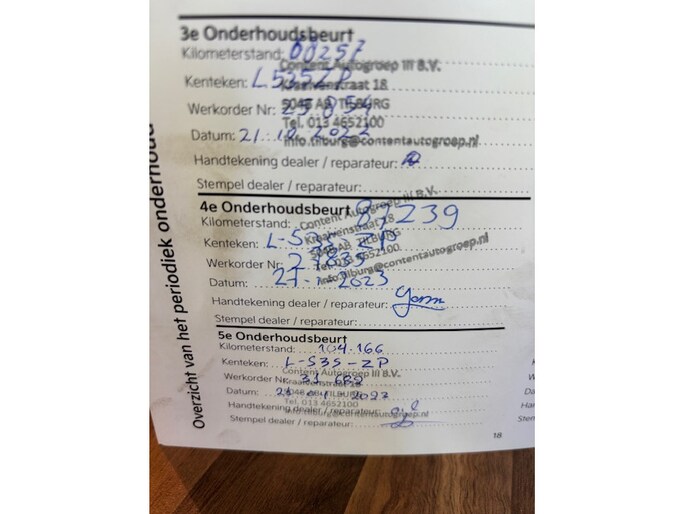 3e Onderhoudsbeurt
Kilometerstand: 68257
Content Autogroep III B.V.
Kenteken: L535ZP
Kraaivenstraat 18
Werkorder Nr:
5048 AB TILBURG
Tel. 013 4652100
Datum: 21.10.2022
info.tilburg@contentautogroep.nl
Handtekening dealer / reparateur:
Stempel dealer / reparateur:
4e Onderhoudsbeurt
Kilometerstand:
Content Autogroep III B.V.
Kraaivenstraat 18
Kenteken: L-535-ZP
5048 AB TILBURG
Tel. 013 4652100
Werkorder Nr:
info.tilburg@contentautogroep.nl
Datum:
Handtekening dealer / reparateur:
Stempel dealer / reparateur:
5e Onderhoudsbeurt
Kilometerstand: 104.166
Kenteken: L-535-ZP
Content Autogroep III B.V.
Werkorder Nr:
Kraaivenstraat 18
Datum:
5048 AB TILBURG
Tel. 013 4652100
Handtekening dealer / reparateur:
info.tilburg@contentautogroep.nl
Stempel dealer / reparateur:
18
Overzicht van het periodiek onderhoud
Ken
Wer
Dat
Han
Ste